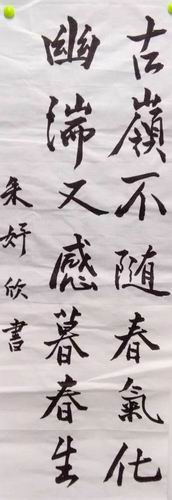 古嶺不随春氣化
幽湍又感暮春生
朱妤欣書